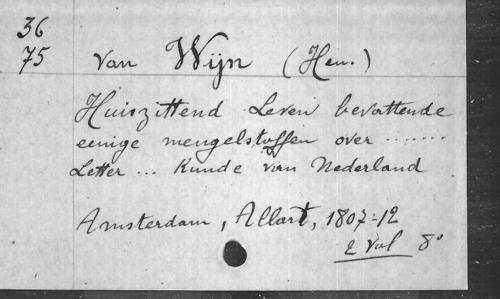 36
75
Van Wijn (Hen.)
Huiszittend Leven bevattende
eenige mengelstoffen over .......
Letter ... Kunde van Nederland
Amsterdam, Allart, 1807-12
2 Vol 8°